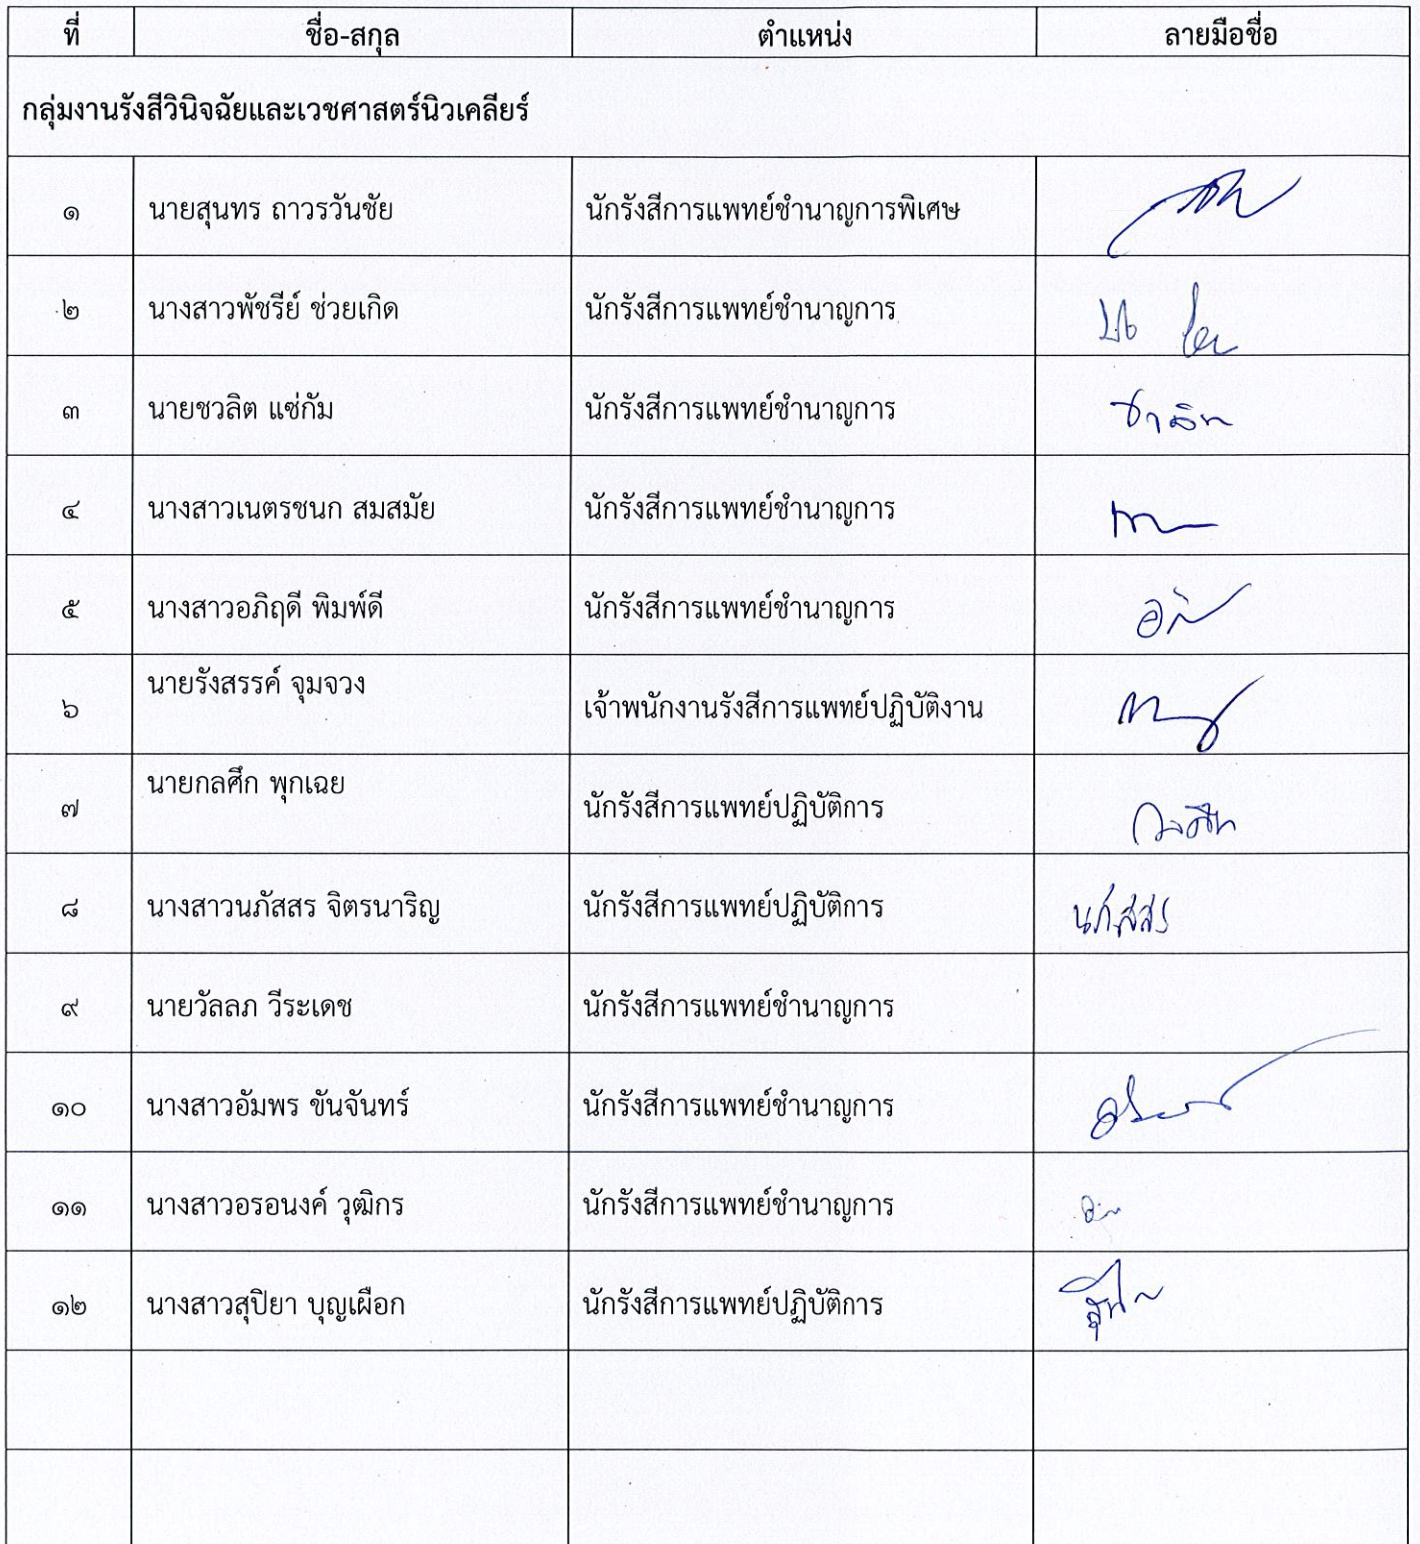 ที่ ชื่อ-สกุล ตำแหน่ง ลายมือชื่อ
กลุ่มงานรังสีวินิจฉัยและเวชศาสตร์นิวเคลียร์
๑ นายสุนทร ถาวรวันชัย นักรังสีการแพทย์ชำนาญการพิเศษ
๒ นางสาวพัชรีย์ ช่วยเกิด นักรังสีการแพทย์ชำนาญการ
๓ นายชวลิต แซ่กัม นักรังสีการแพทย์ชำนาญการ
๔ นางสาวเนตรชนก สมสมัย นักรังสีการแพทย์ชำนาญการ
๕ นางสาวอภิฤดี พิมพ์ดี นักรังสีการแพทย์ชำนาญการ
๖ นายรังสรรค์ จุมจวง เจ้าพนักงานรังสีการแพทย์ปฏิบัติงาน
๗ นายกลศึก พุกเฉย นักรังสีการแพทย์ปฏิบัติการ
๘ นางสาวนภัสสร จิตรนาริญ นักรังสีการแพทย์ปฏิบัติการ นภัสสร
๙ นายวัลลภ วีระเดช นักรังสีการแพทย์ชำนาญการ
๑๐ นางสาวอัมพร ขันจันทร์ นักรังสีการแพทย์ชำนาญการ
๑๑ นางสาวอรอนงค์ วุฒิกร นักรังสีการแพทย์ชำนาญการ
๑๒ นางสาวสุปิยา บุญเผือก นักรังสีการแพทย์ปฏิบัติการ